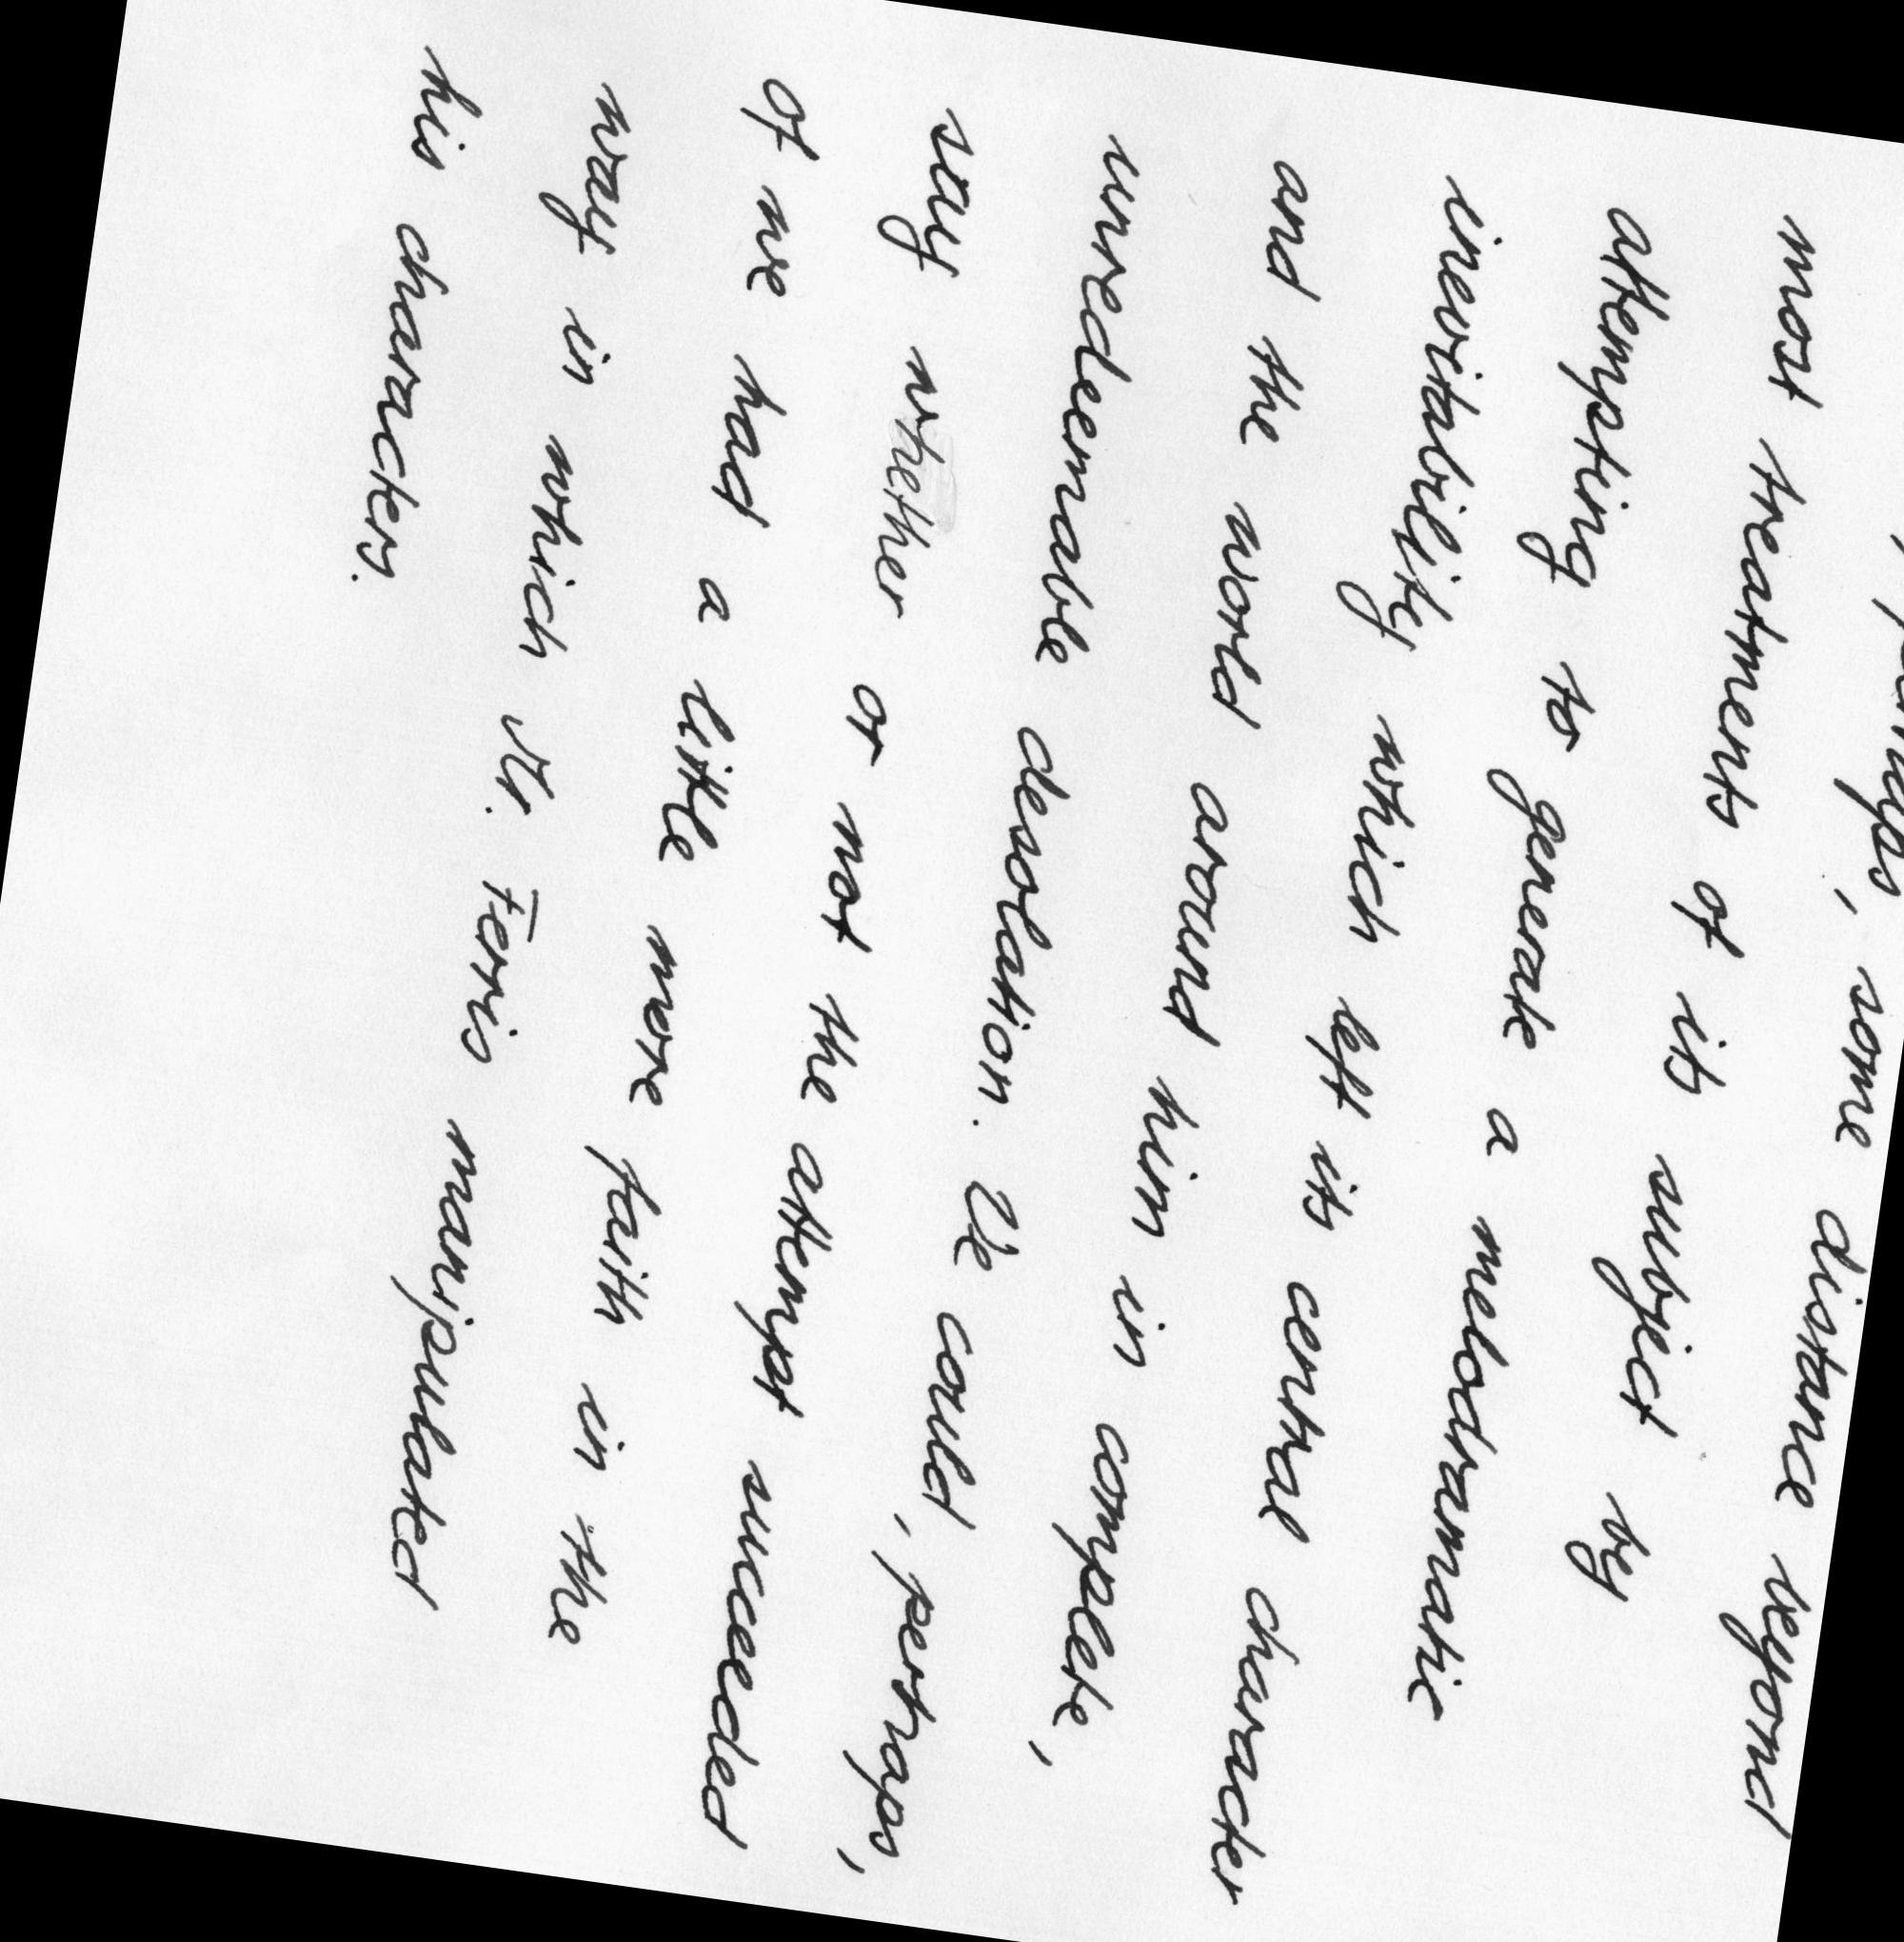 perhaps, some distance beyond
most treatments of its subject by
attempting to generate a melodramatic
inevitability which left its central character
and the world around him in complete,
unredeemable desolation. We could, perhaps,
say whether or not the attempt succeeded
of we had a little more faith in the
way in which Mr. Ferris manipulated
his characters.